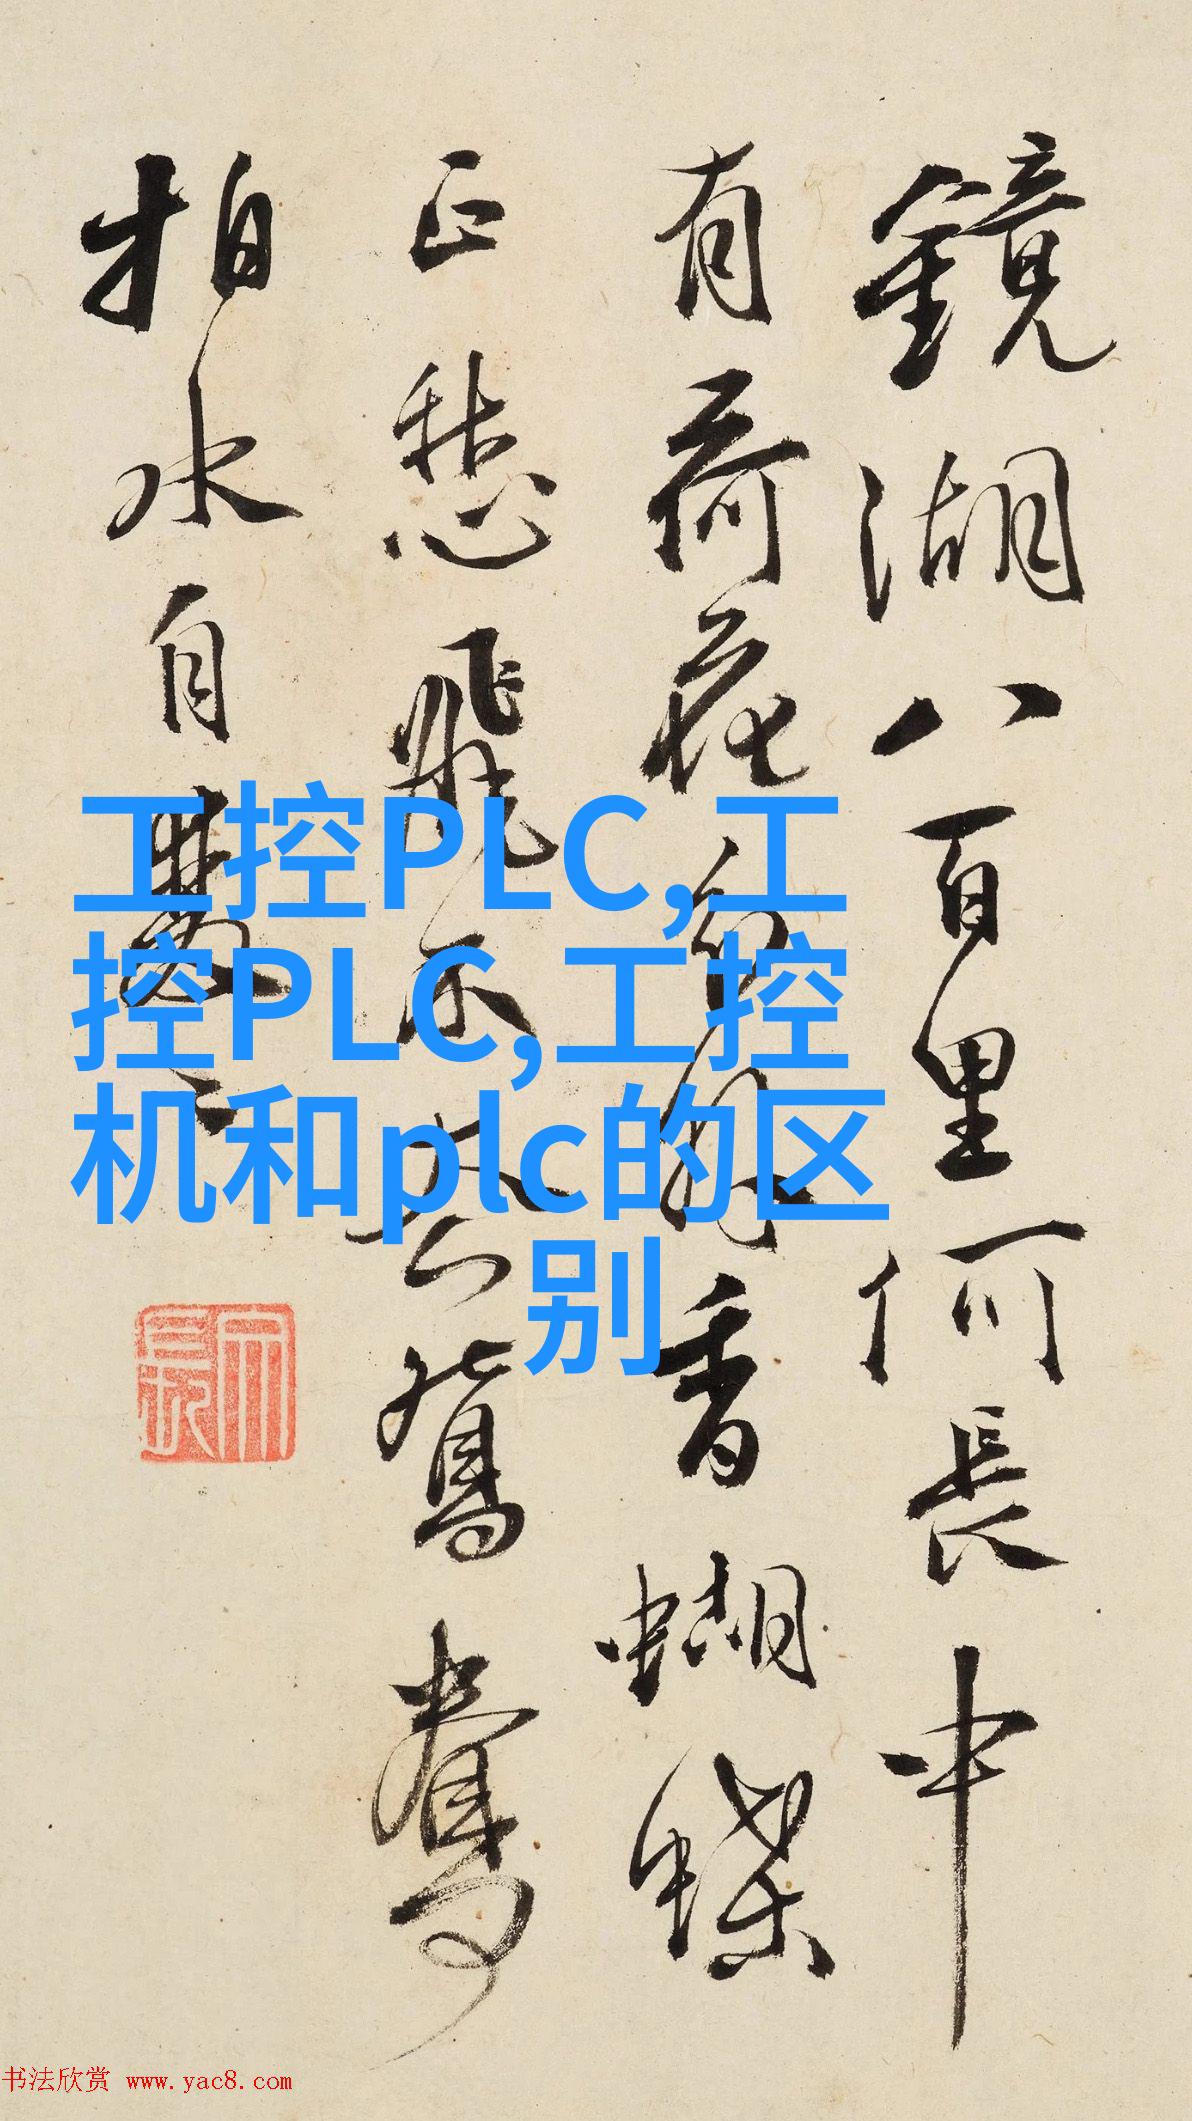 鏡湖八百里何長中
有荷花香蝴蝶
正愁飛不去鴛鴦
拍水自雙
工控PLC,工
控PLC,工控
机和plc的区
别
书法欣赏 www.yac8.com